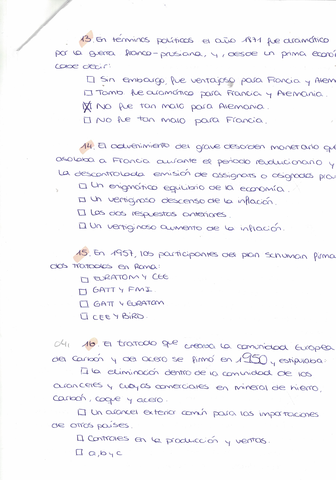 13. En términos políticos el año 1871 fue dramático
por la guerra franco-prusiana, y, desde un prisma econó
cabe decir:
□ Sin embargo, fue ventajoso para Francia y Alem
□ Tanto fue dramático para Francia y Alemania.
☒ No fue tan malo para Alemania.
□ No fue tan malo para Francia.
14. El advenimiento del grave desorden monetario que
asolaba a Francia durante el periodo revolucionario y
la descontrolada emisión de assignats o asignados pro
□ Un enigmático equilibrio de la economía.
□ Un vertiginoso descenso de la inflación.
□ Las dos respuestas anteriores.
□ Un vertiginoso aumento de la inflación.
15. En 1957, los participantes del plan Schuman firma
dos tratados en Roma:
□ EURATOM y CEE
□ GATT y FMI.
□ GATT y EURATOM
□ CEE y BIRD.
16. El tratado que creaba la comunidad Europea
del Carbón y del acero se firmó en 1950 y estipulaba:
□ la eliminación dentro de la comunidad de los
aranceles y cuyos comerciales en mineral de hierro,
carbón, coque y acero.
□ Un arancel exterior común para las importaciones
de otros países.
□ Controles en la producción y ventas.
□ a, b y c